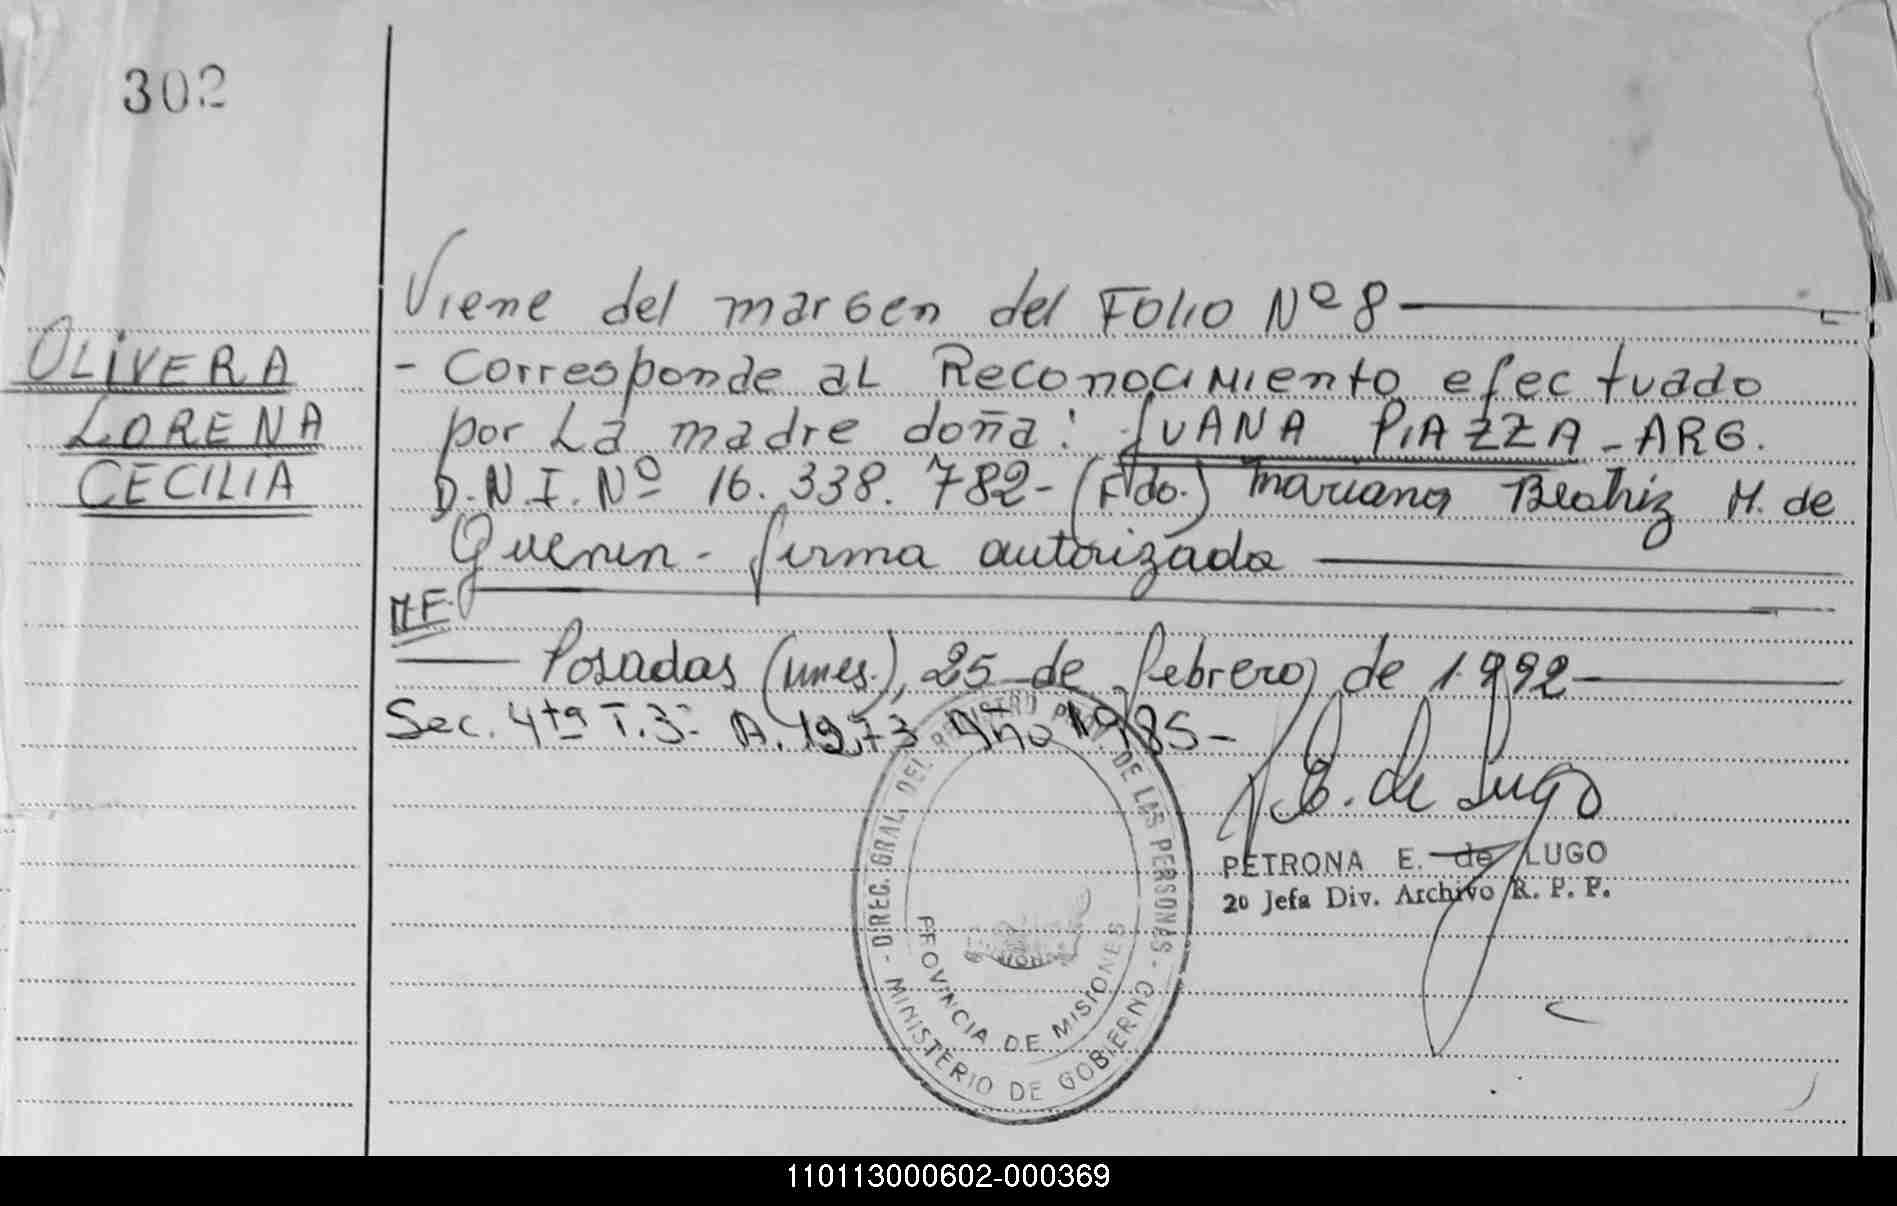 302
Viene del margen del Folio Nº 8
OLIVERA
LORENA
CECILIA
- Corresponde al Reconocimiento efectuado
por La madre doña: JUANA PIAZZA - ARG.
D.N.I. Nº 16.338.782- (Fdo.) Mariana Beatriz M. de
Guenin - firma autorizada
M.F.
Posadas (mnes.), 25 de febrero de 1992
Sec. 4ta T.3º A.1273 Año 1985-
P.E. de Lugo
PETRONA E. de LUGO
2º Jefa Div. Archivo R. P. P.
- DIREC. GRAL. DEL REGISTRO PCIAL. DE LAS PERSONAS -
PROVINCIA DE MISIONES
MINISTERIO DE GOBIERNO
110113000602-000369